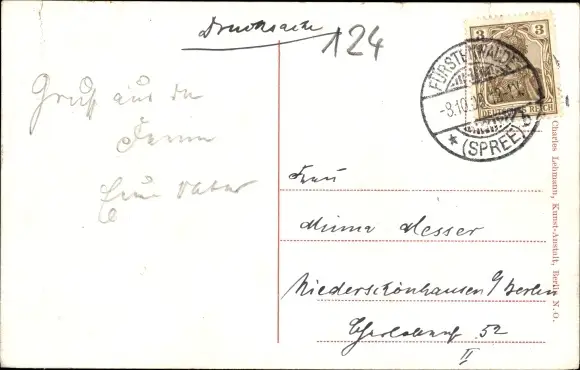 Drucksache
124
3
DEUTSCHES REICH
FÜRSTENWALDE
-8.10.
* (SPREE) b
Gruß aus der
Ferne
Vater
Frau
Minna Messer
Niederschönhausen b/Berlin
52
II
Charles Lehmann, Kunst-Anstalt, Berlin N.O.